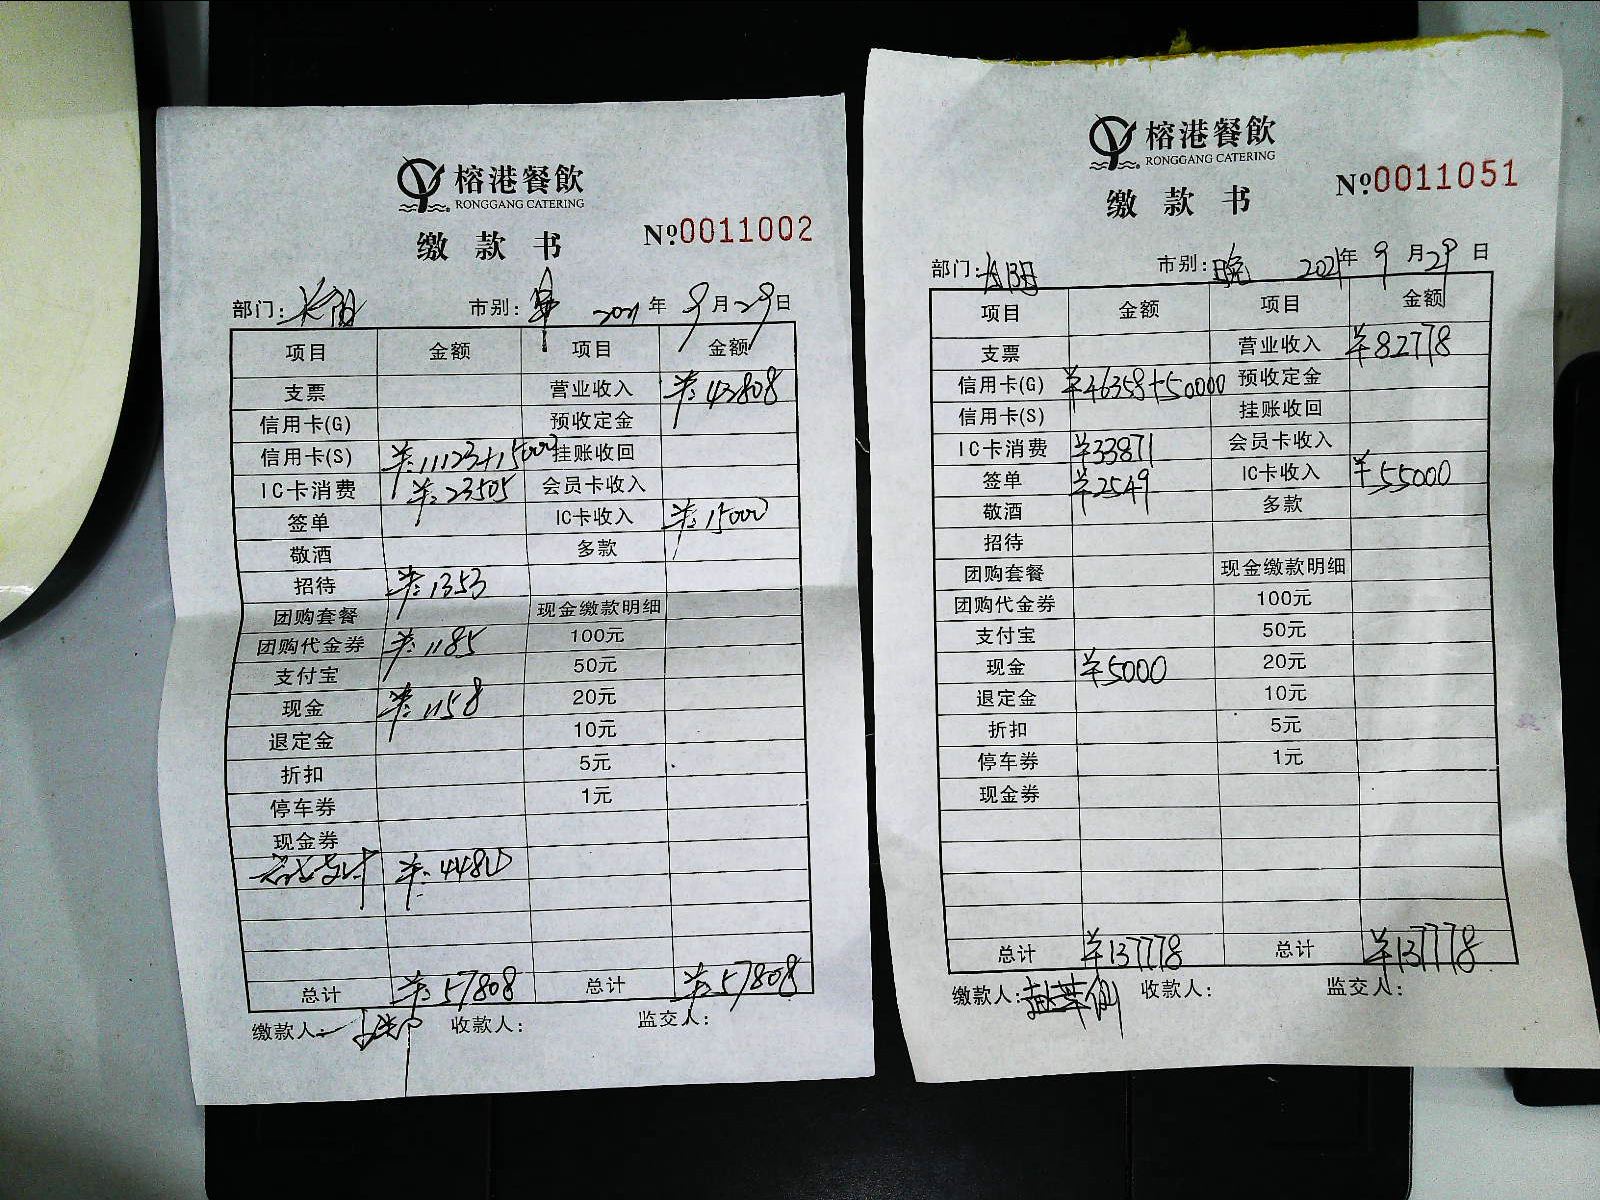 榕港餐飲
RONGGANG CATERING
缴款书
№0011002
部门: 长阳 市别: 早 2021年9月29日
项目 金额 项目 金额
支票 营业收入 ¥:42808
信用卡(G) 预收定金
信用卡(S) ¥:11123+15000 挂账收回
IC卡消费 ¥:23505 会员卡收入
签单 IC卡收入 ¥:15000
敬酒 多款
招待 ¥:1353
团购套餐 现金缴款明细
团购代金券 ¥:1185 100元
支付宝 50元
现金 ¥:1158 20元
退定金 10元
折扣 5元
停车券 1元
现金券
支付 ¥:4484
总计 ¥:57808 总计 ¥:57808
缴款人: 收款人: 监交人:
榕港餐飲
RONGGANG CATERING
缴款书
№0011051
部门: 长阳 市别: 晚 2021年9月29日
项目 金额 项目 金额
支票 营业收入 ¥82778
信用卡(G) ¥46358+50000 预收定金
信用卡(S) 挂账收回
IC卡消费 ¥33871 会员卡收入
签单 ¥2549 IC卡收入 ¥55000
敬酒 多款
招待
团购套餐 现金缴款明细
团购代金券 100元
支付宝 50元
现金 ¥5000 20元
退定金 10元
折扣 5元
停车券 1元
现金券
总计 ¥137778 总计 ¥137778
缴款人: 收款人: 监交人: